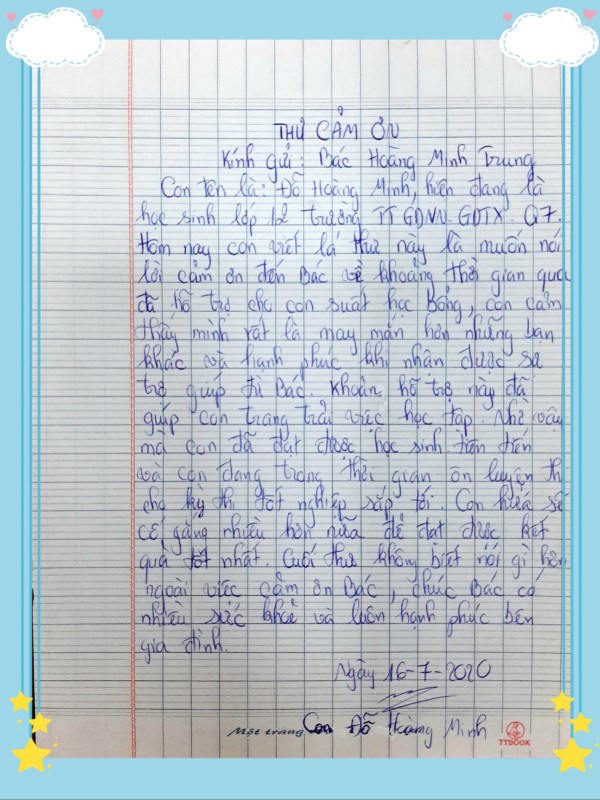 THƯ CẢM ƠN
Kính gửi : Bác Hoàng Minh Trung
Con tên là : Đỗ Hoàng Minh, hiện đang là
học sinh lớp 12 trường TT GDNN-GDTX Q7.
Hôm nay con viết lá thư này là muốn nói
lời cảm ơn đến Bác về khoảng thời gian qua
đã hỗ trợ cho con suất học bổng, con cảm
thấy mình rất là may mắn hơn những bạn
khác và hạnh phúc khi nhận được sự
trợ giúp từ Bác. Khoản hỗ trợ này đã
giúp con trang trải việc học tập. Nhờ vậy
mà con đã đạt được học sinh tiên tiến
và con đang trong thời gian ôn luyện thi
cho kỳ thi tốt nghiệp sắp tới. Con hứa sẽ
cố gắng nhiều hơn nữa để đạt được kết
quả tốt nhất. Cuối thư không biết nói gì hơn
ngoài việc cảm ơn Bác, chúc Bác có
nhiều sức khoẻ và luôn hạnh phúc bên
gia đình.
Ngày 16-7-2020
Con Đỗ Hoàng Minh
Một trang
TTBOOK